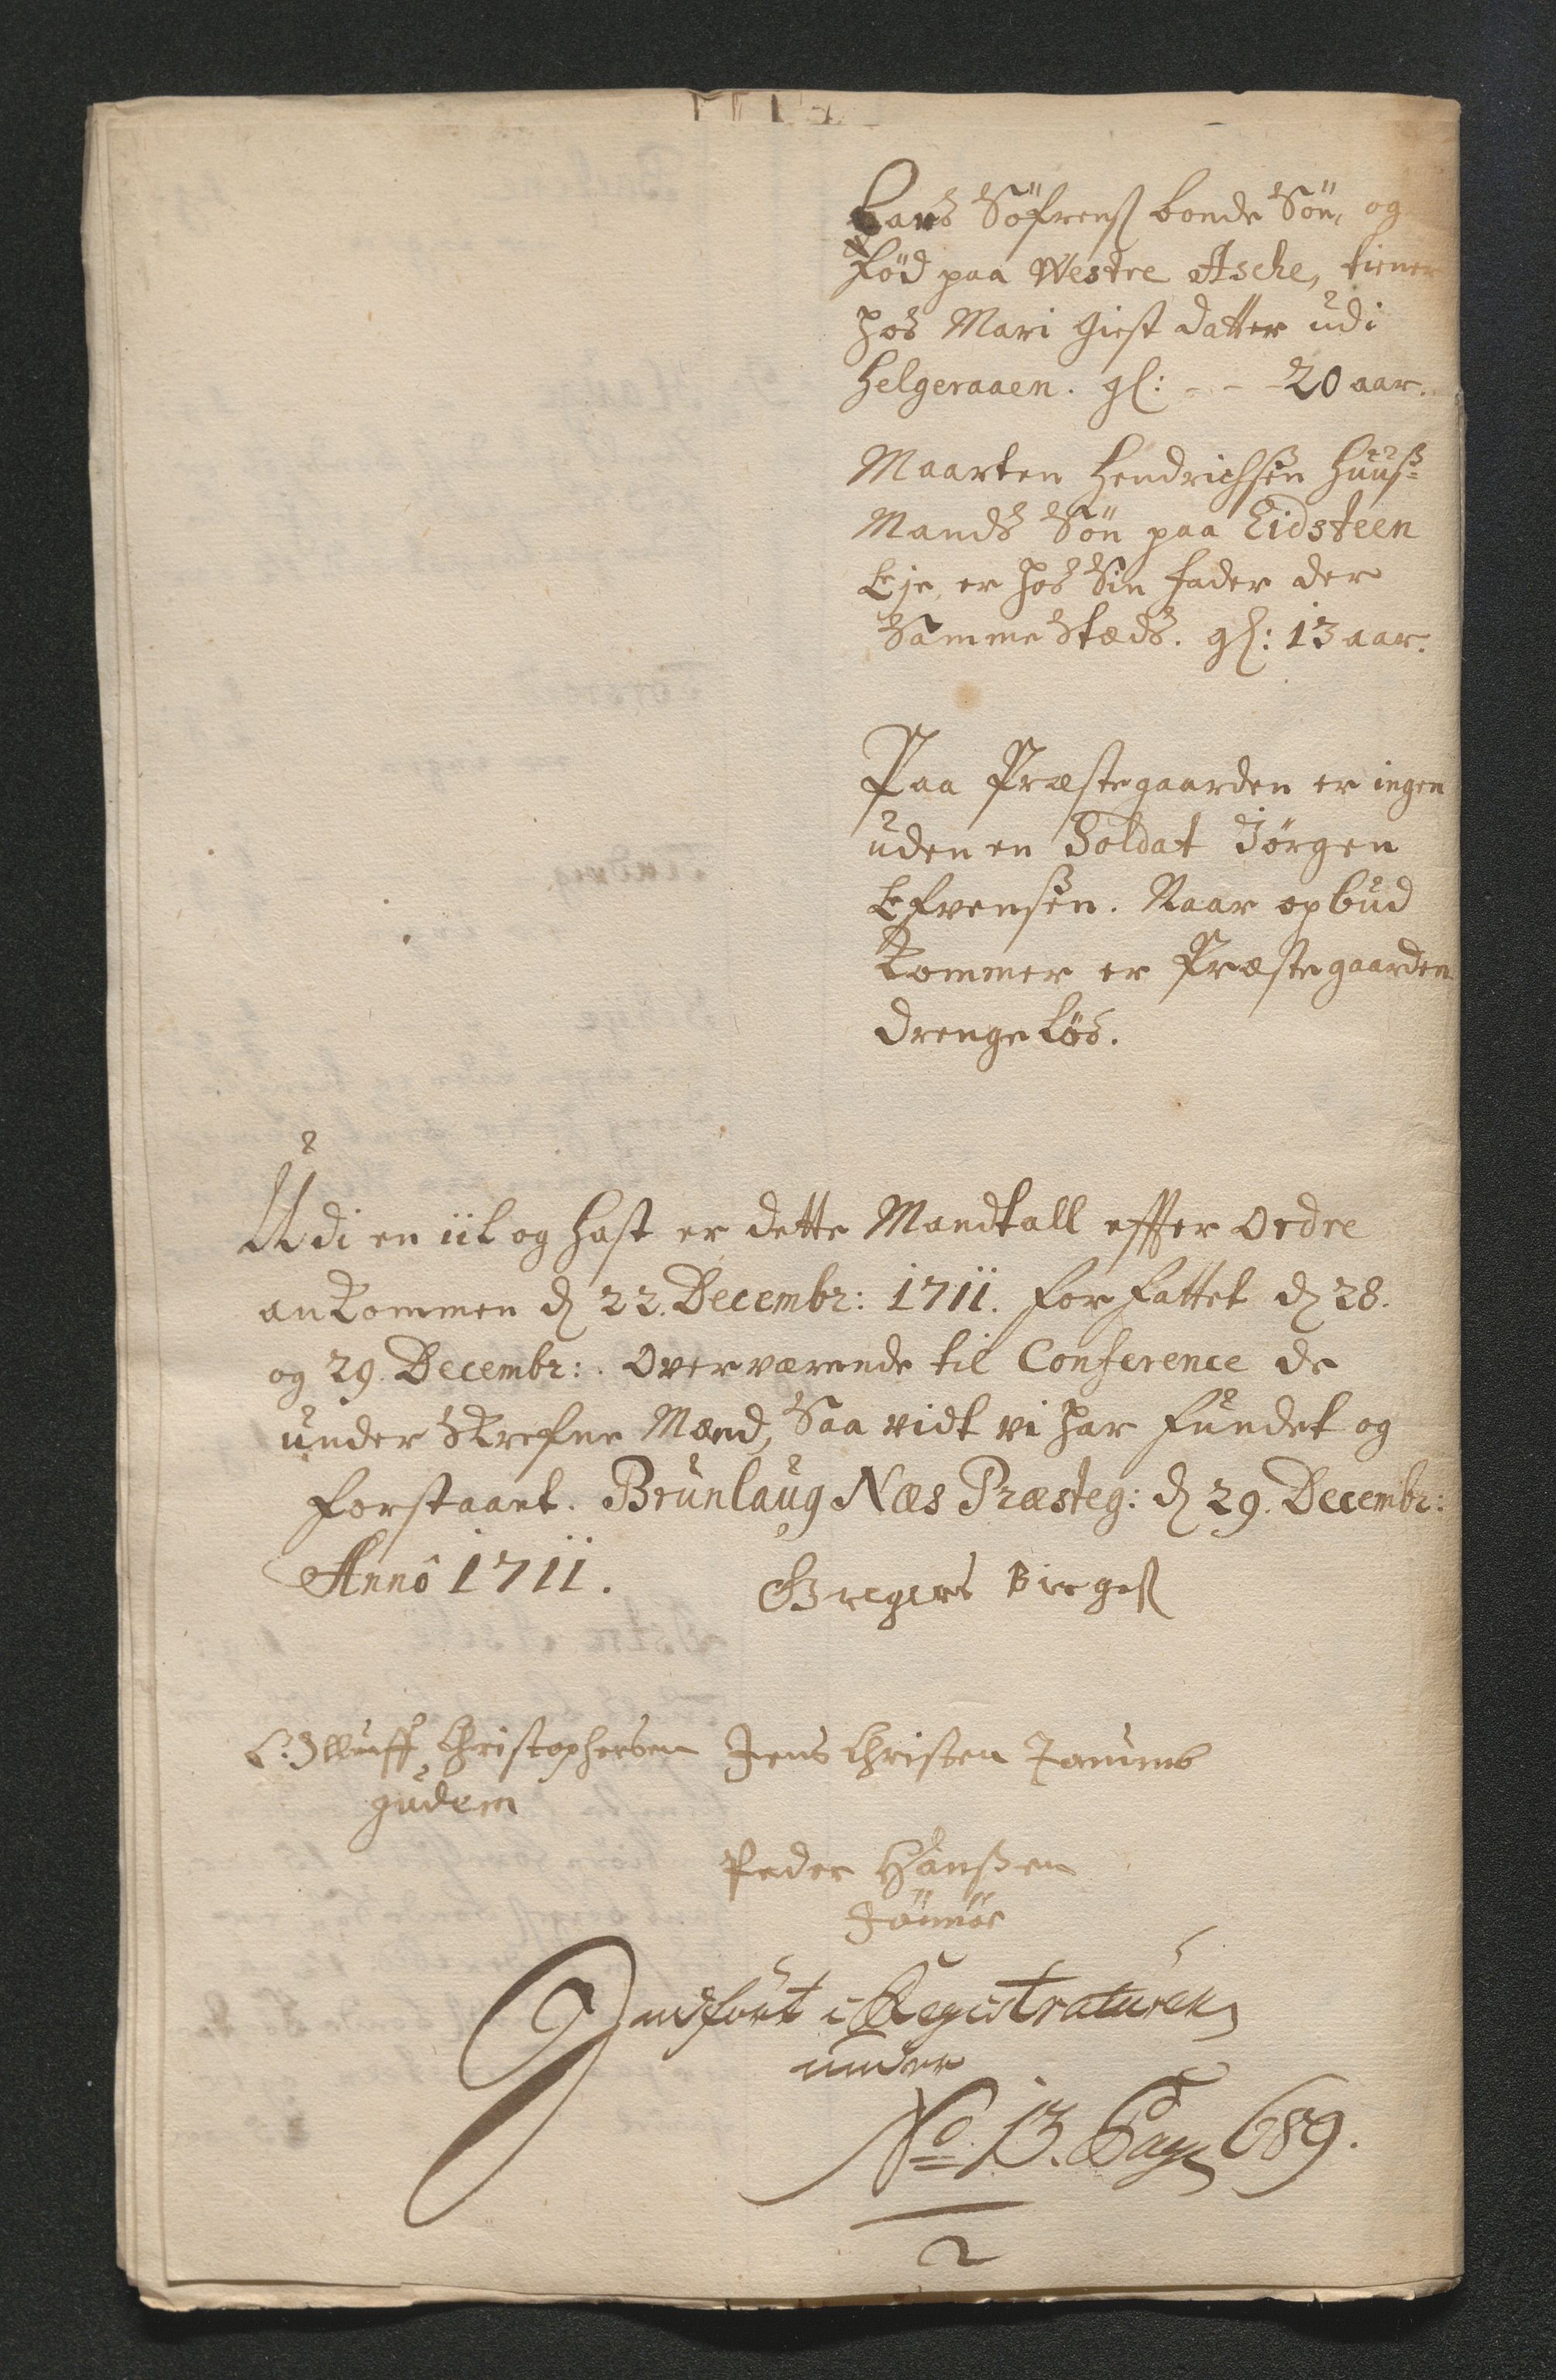 Lars Söfrenß bonde Sön, og
Föd paa Westre Aske, tiener
hos Mari Giest datter udi
Helgeraaen. gl: - - - 20 aar.
Maarten Hendrichsen Huuß-
Mands Sön paa Eidsteen
Eje, er hos Sin fader der
Samme Stæds. gl: 13 aar.
Paa Præstegaarden er ingen
uden en Soldat Jörgen
Efvensen. Naar opbud
kommer er Præstegaarden
drenge löß.
Udi en iil og hast er dette Mandtall effter Ordre
ankommen d 22. Decembr: 1711. forfattet d 28.
og 29. Decembr: . Overværende til Conference de
under Skrefne Mænd, Saa vidt vi har fundet og
forstaaet. Brunlaug Næs Præsteg: d 29. Decembr:
Annô 1711.
Gregers Birgeß
Christophersen Jens Christen
gudem
Peder Hanßen
Indfört i Registraturen
under
No 13. Pag 689.
2